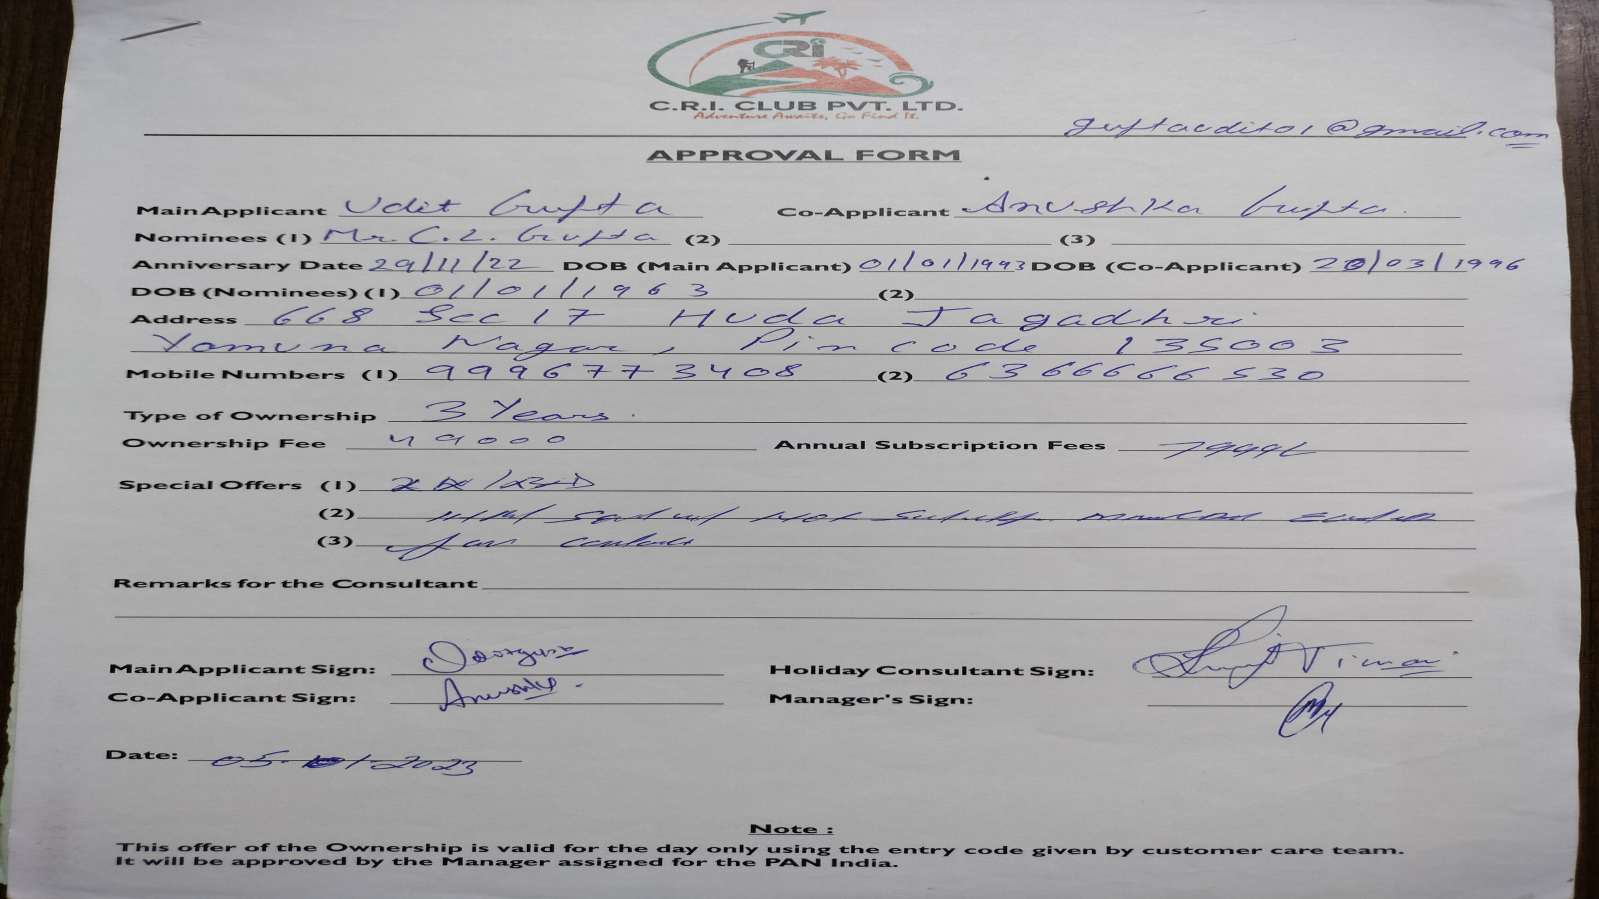 CRI
C.R.I. CLUB PVT. LTD.
Adventure Awaits, Go Find It.
guptaudit01@gmail.com
APPROVAL FORM
Main Applicant Udit Gupta Co-Applicant Anushka Gupta.
Nominees (1) Mr. C.L. Gupta (2) (3)
Anniversary Date 29/11/22 DOB (Main Applicant) 01/01/1993 DOB (Co-Applicant) 20/03/1996
DOB (Nominees) (1) 01/01/1963 (2)
Address 668 Sec 17 Huda Jagadhri
Yamuna Nagar, Pin code 135003
Mobile Numbers (1) 9996773408 (2) 6366666530
Type of Ownership 3 Years.
Ownership Fee 49000 Annual Subscription Fees
Special Offers (1)
(2)
(3)
Remarks for the Consultant
Main Applicant Sign: Holiday Consultant Sign:
Co-Applicant Sign: Anushka. Manager's Sign:
Date: 05-01-2023
Note :
This offer of the Ownership is valid for the day only using the entry code given by customer care team.
It will be approved by the Manager assigned for the PAN India.